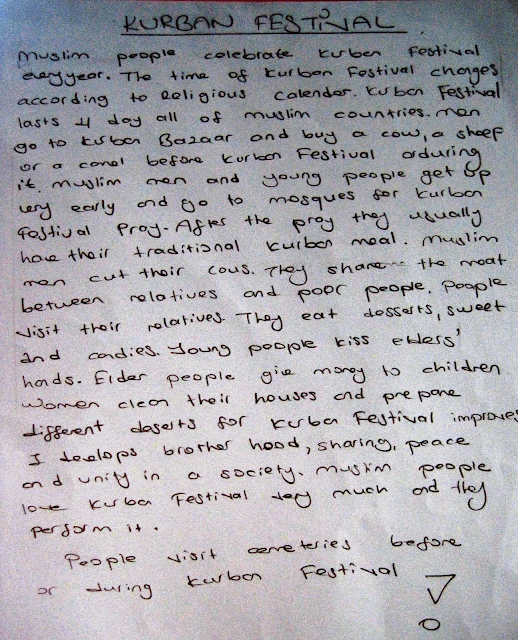 KURBAN FESTİVAL
Muslim people celebrate Kurban Festival
everyyear. The time of Kurban Festival changes
according to Religious calender. Kurban Festival
lasts 4 day all of muslim countries. Men
go to Kurban Bazaar and buy a cow, a sheep
or a camel before Kurban Festival orduring
it. Muslim men and young people get up
very early and go to mosques for Kurban
Festival Pray. After the pray they usually
have their traditional Kurban meal. Muslim
men cut their cows. They share the meat
between relatives and poor people. People
visit their relatives. They eat desserts, sweet
and candies. Young people kiss elders'
hands. Elder people give money to children.
Women clean their houses and prepare
different deserts for Kurban Festival improves
I develops brother hood, sharing, peace
and unity in a society. Muslim people
love Kurban Festival very much and they
perform it.
People visit cemeteries before
or during Kurban Festival